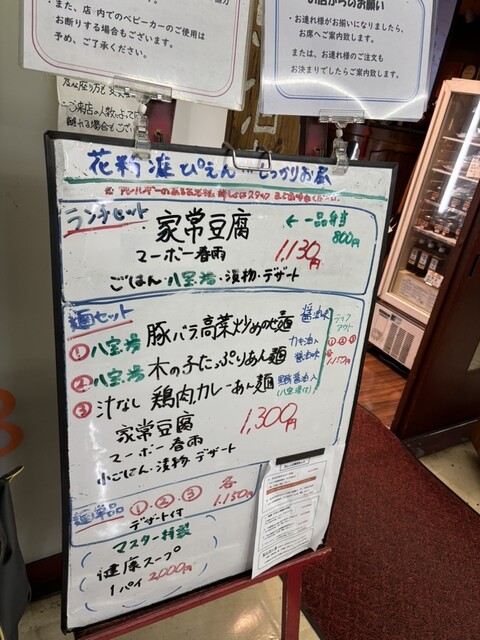 ・また、店内でのベビーカーのご使用は
お断りする場合もございます。
予め、ご了承ください。
のお願い
・お連れ様がお揃いになりましたら、
お席へご案内致します。
または、お連れ様のご注文も
お決まりでしたらご案内致します。
ご来店の人数によって
離れる場合もござい
花粉症ぴえん
しっかりお昼
ランチセット
家常豆腐
←一品弁当
800円
マーボー春雨
1,130円
ごはん・八宝湯・漬物・デザート
麺セット
① 八宝湯 豚バラ高菜炒めのせ麺 醤油味
② 八宝湯 木の子たっぷりあん麺 カキ油入 醤油味
③ 汁なし 鶏肉カレーあん麺
(八宝湯付)
テイクアウト
①②③
各1,150円
家常豆腐
マーボー春雨
1,300円
小ごはん・漬物・デザート
麺単品 ①・②・③ 各1,150円
デザート付
マスター特製
健康スープ
1パイ 2,000円